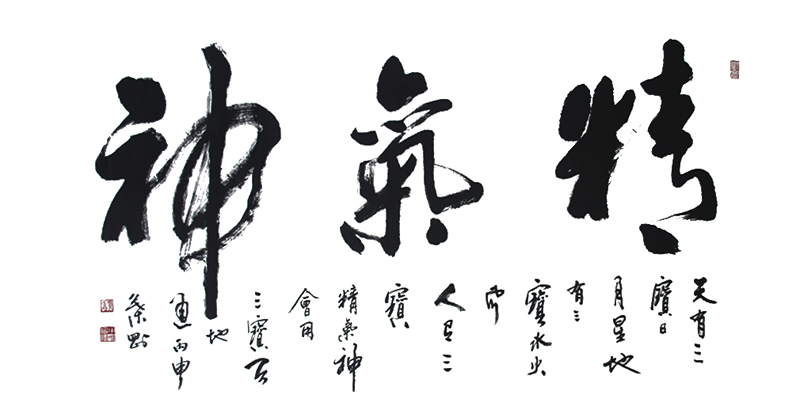 精氣神
天有三
寶日
月星地
有三
寶水火
風
人有三
寶
精氣神
會用
三寶天
地
通丙申